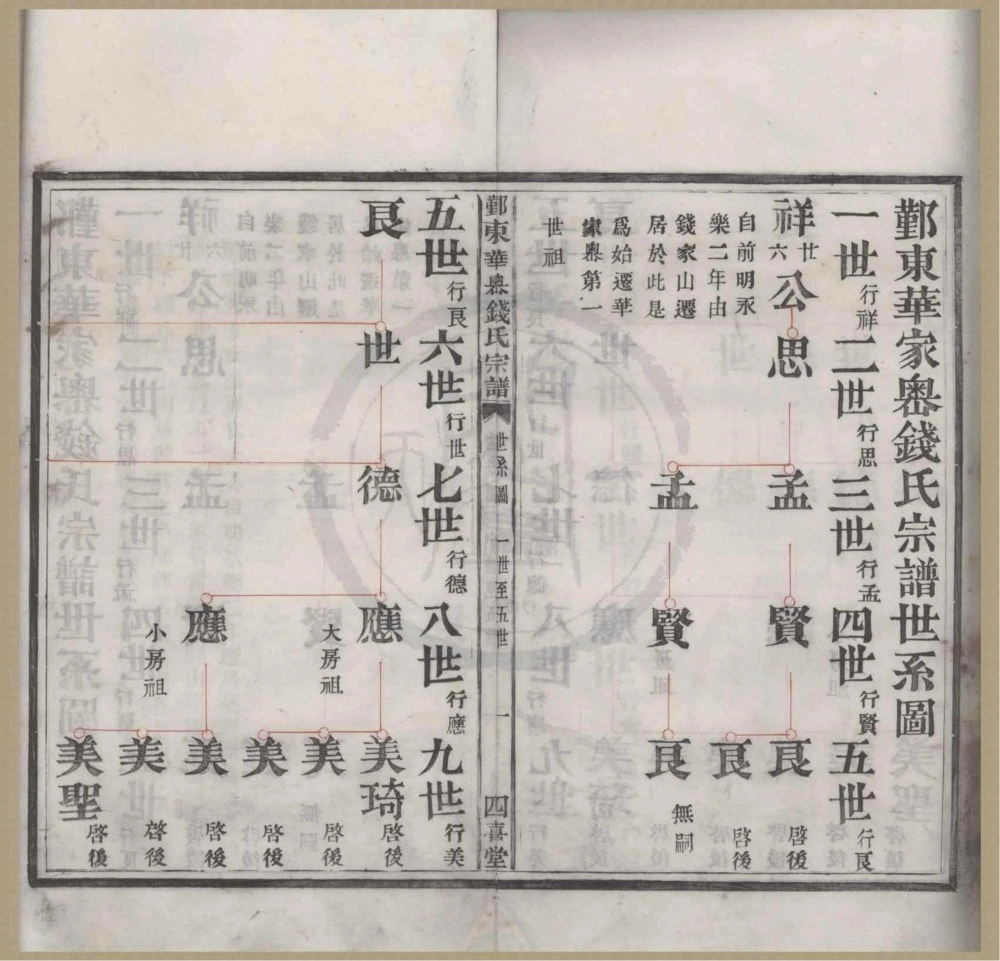 鄞東華家嶴錢氏宗譜世系圖
一世行祥二世行思三世行孟四世行賢五世行艮
祥廿六公
思
孟
賢
艮
啓後
自前明永
樂二年由
錢家山遷
居於此是
爲始遷華
家嶴第一
世祖
艮
啓後
孟
賢
艮
無嗣
鄞東華嶴錢氏宗譜
世系圖
一世至五世
一
四喜堂
五世行艮六世行世七世行德八世行應九世行美
艮
世
德
應
大房祖
美琦
啓後
美
啓後
美
啓後
應
小房祖
美
啓後
美
啓後
美聖
啓後